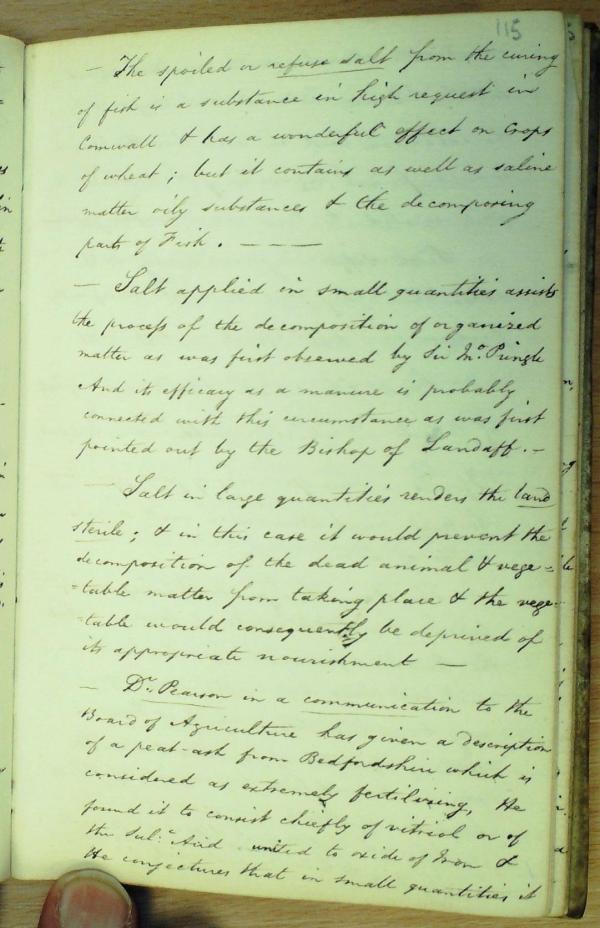 115
— The spoiled or refuse salt from the curing
of fish is a substance in high request in
Cornwall & has a wonderful effect on Crops
of wheat; but it contains as well as saline
matter oily substances & the decomposing
parts of Fish. — — —
— Salt applied in small quantities assists
the process of the decomposition of organized
matter as was first observed by Sir Jno. Pringle
And its efficacy as a manure is probably
connected with this circumstance as was first
pointed out by the Bishop of Landaff. —
— Salt in large quantities renders the land
sterile; & in this case it would prevent the
decomposition of the dead animal & vege=
=table matter from taking place & the vege=
=table would consequently be deprived of
its appropriate nourishment —
— Dr. Pearson in a communication to the
Board of Agriculture has given a description
of a peat-ash from Bedfordshire which is
considered as extremely fertilizing, He
found it to consist chiefly of vitriol or of
the Sul.c Acid united to oxide of Iron &
He conjectures that in small quantities it